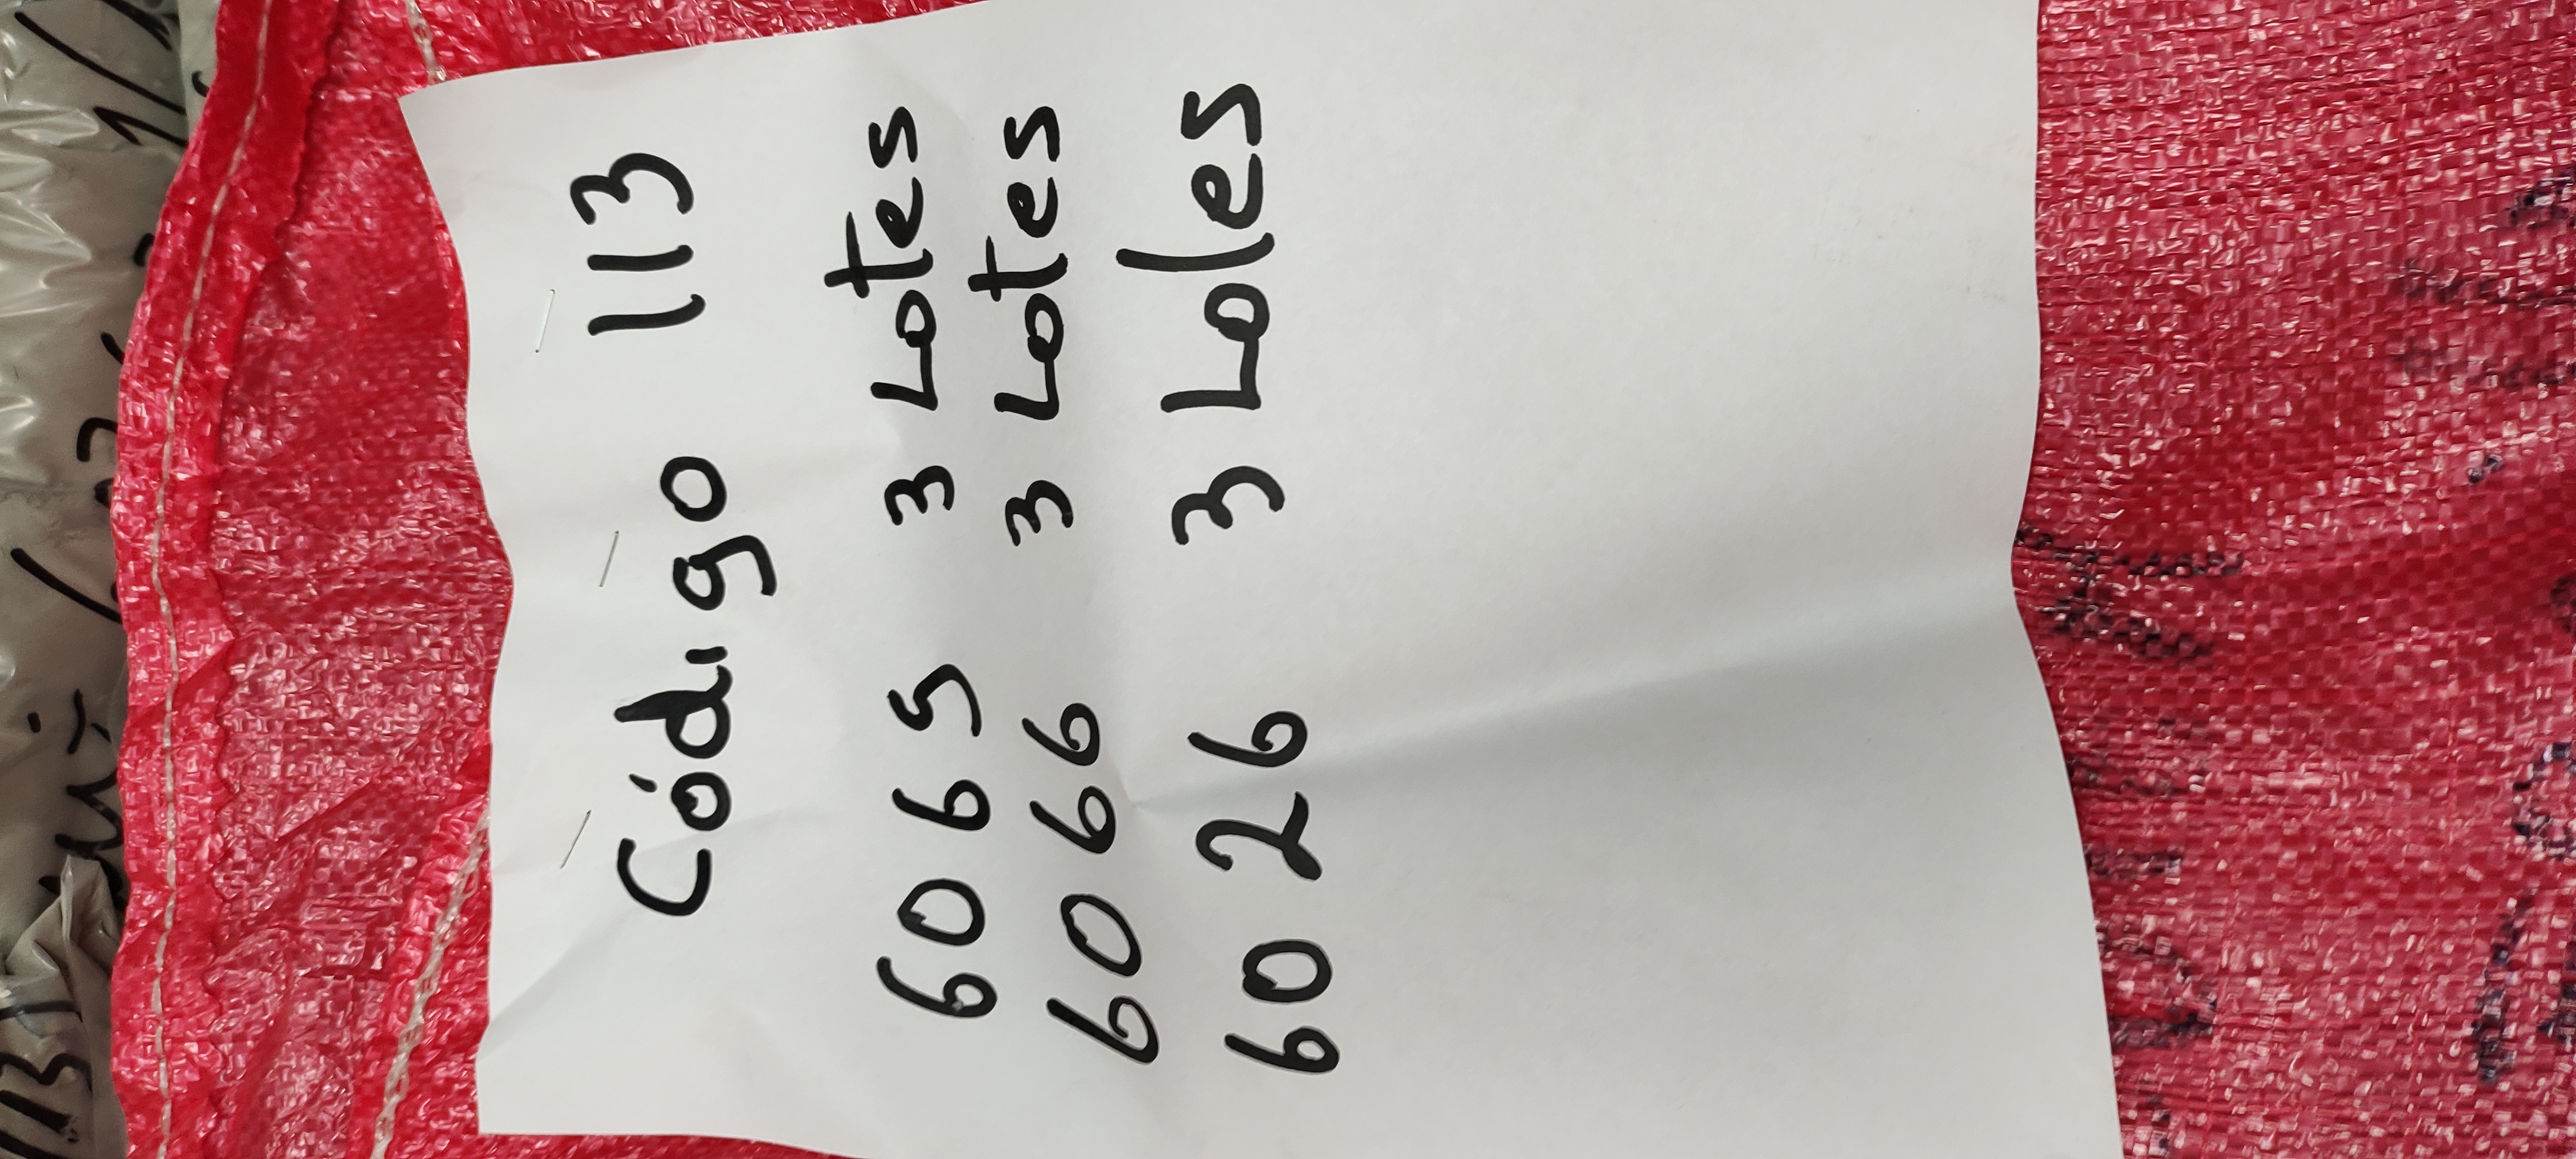 Código 113
6065 3 Lotes
6066 3 Lotes
6026 3 Lotes